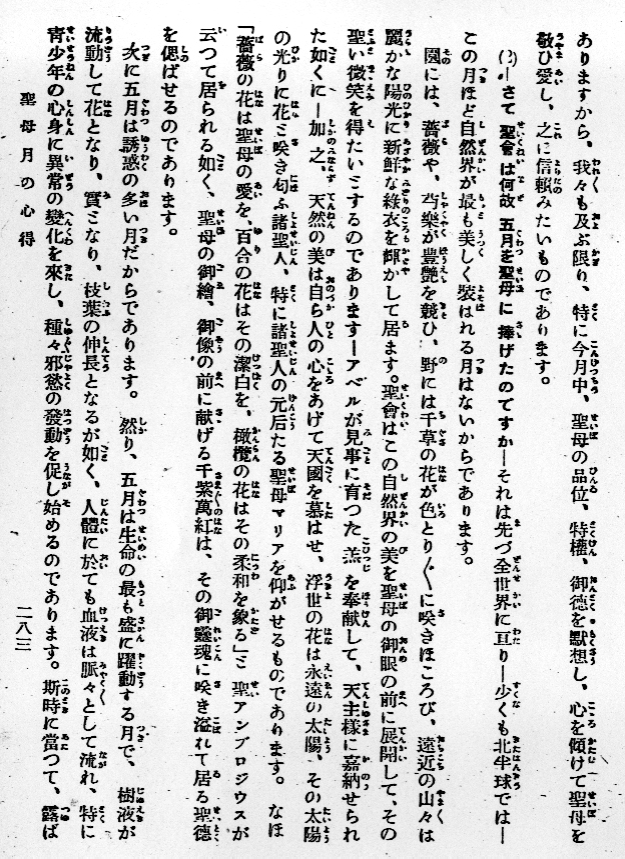 ありますから、我々も及ぶ限り、特に今月中、聖母の品位、特權、御德を默想し、心を傾けて聖母を
敬ひ愛し、之に信賴みたいものであります。
(ㇿ)—さて聖會は何故 五月を聖母に 捧げたのですか—それは先づ全世界に亘り—少くも北半球では—
この月ほど自然界が最も美しく裝はれる月はないからであります。
園には、薔薇や、芍藥が豊艶を競ひ、野には千草の花が色とり〴〵に咲きほころび、遠近の山々は
麗かな陽光に新鮮な綠衣を輝かして居ます。聖會はこの自然界の美を聖母の御眼の前に展開して、その
聖い微笑を得たいとするのであります—アベルが見事に育つた羔を奉献して、天主樣に嘉納せられ
た如くに—加之、天然の美は自ら人の心をあげて天國を慕はせ、浮世の花は永遠の太陽、その太陽
の光りに花と咲き匂ふ諸聖人、特に諸聖人の元后たる聖母マリアを仰がせるものであります。 なほ
「薔薇の花は聖母の愛を、百合の花はその潔白を、橄欖の花はその柔和を象る」と 聖アンブロジウスが
云つて居られる如く、聖母の御繪、御像の前に献げる千紫萬紅は、その御靈魂に咲き溢れて居る聖德
を偲ばせるのであります。
次に五月は誘惑の多い月だからであります。 然り、五月は生命の最も盛に躍動する月で、樹液が
流動して花となり、實となり、枝葉の伸長となるが如く、人體に於ても血液は脈々として流れ、特に
靑少年の心身に異常の變化を來し、種々邪慾の發動を促し始めるのであります。斯時に當つて、露ば
聖母月の心得
二八三